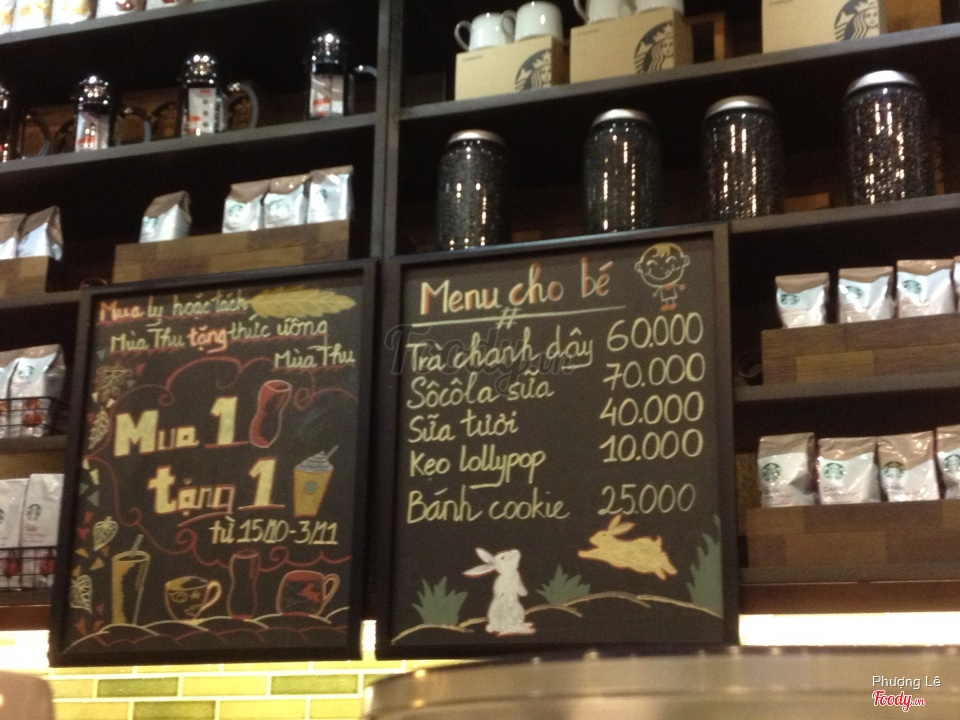 Mua ly hoặc tách
Mùa Thu tặng thức uống
Mùa Thu
Mua 1
tặng 1
từ 15/10-3/11
Menu cho bé
#
Trà chanh dây 60.000
Sôcôla sữa 70.000
Sữa tươi 40.000
Kẹo lollypop 10.000
Bánh cookie 25.000
Foody.vn
Phương Lê
Foody.vn